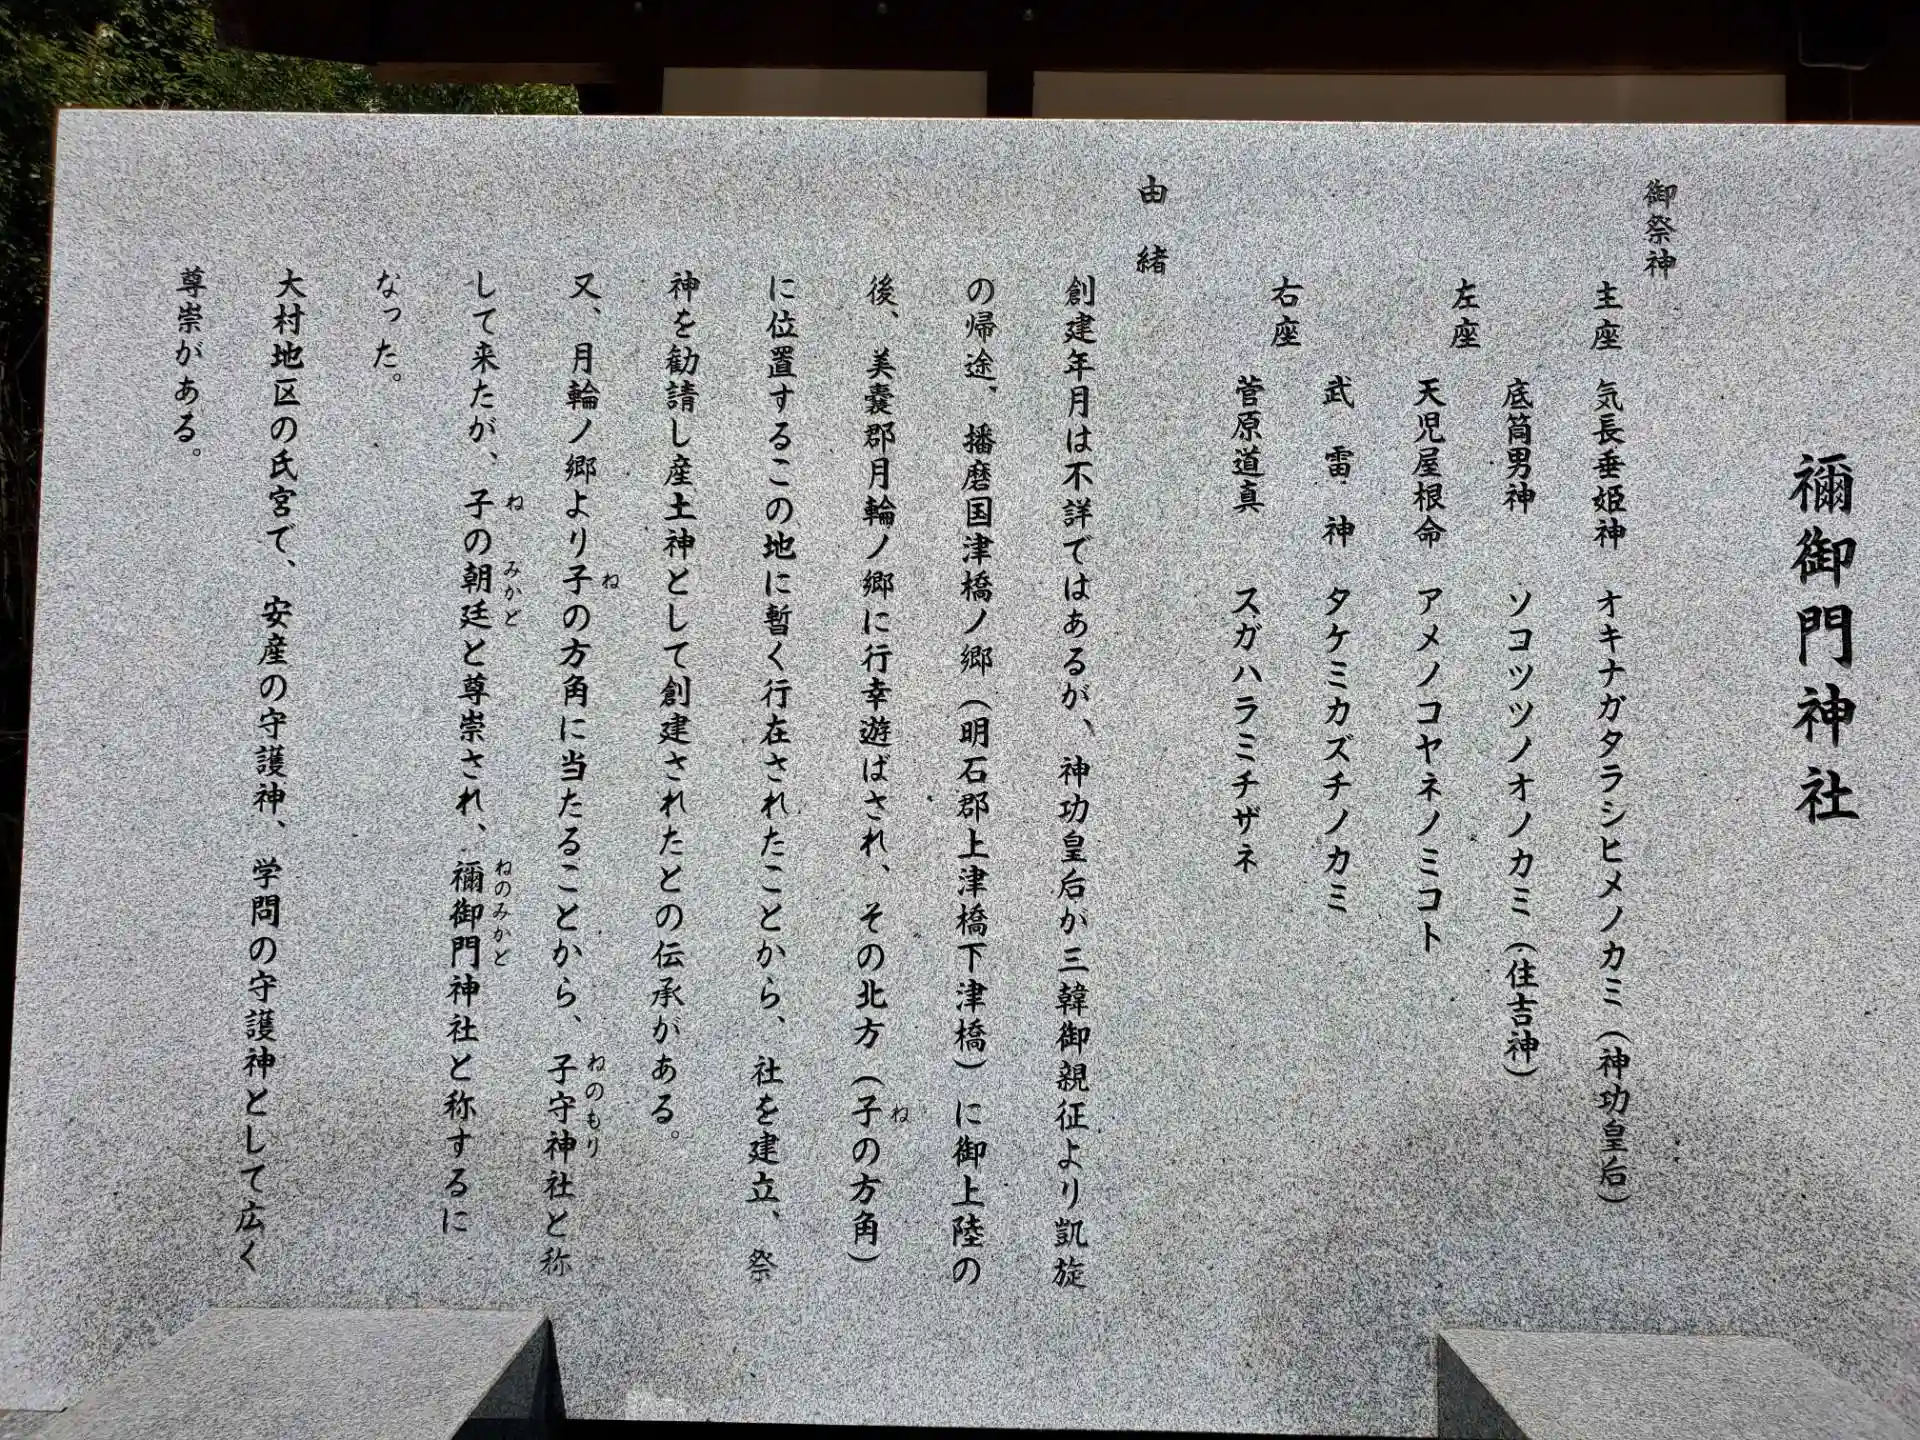 禰御門神社
御祭神
主座 気長垂姫神 オキナガタラシヒメノカミ(神功皇后)
底筒男神 ソコツツノオノカミ(住吉神)
左座
天児屋根命 アメノコヤネノミコト
武雷神 タケミカズチノカミ
右座
菅原道真 スガハラミチザネ
由緒
創建年月は不詳ではあるが、神功皇后が三韓御親征より凱旋
の帰途、播磨国津橋ノ郷(明石郡上津橋下津橋)に御上陸の
後、美嚢郡月輪ノ郷に行幸遊ばされ、その北方(子の方角)
ね
に位置するこの地に暫く行在されたことから、社を建立、祭
神を勧請し産土神として創建されたとの伝承がある。
又、月輪ノ郷より子の方角に当たることから、子守神社と称
ね ねのもり
して来たが、子の朝廷と尊崇され、禰御門神社と称するに
ね みかど ねのみかど
なった。
大村地区の氏宮で、安産の守護神、学問の守護神として広く
尊崇がある。